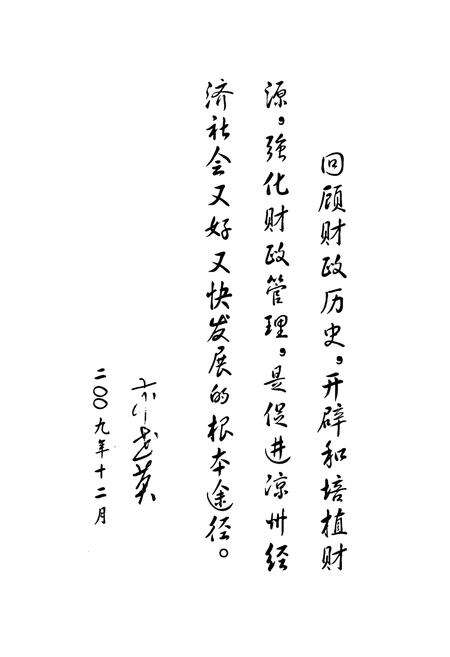 回顾财政历史，开辟和培植财
源，强化财政管理，是促进凉州经
济社会又好又快发展的根本途径。
二〇〇九年十二月